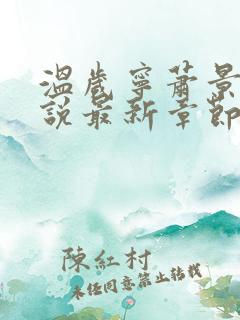 溫歲寧蕭景
說最新章節
陳紅村
未经同意禁止转载